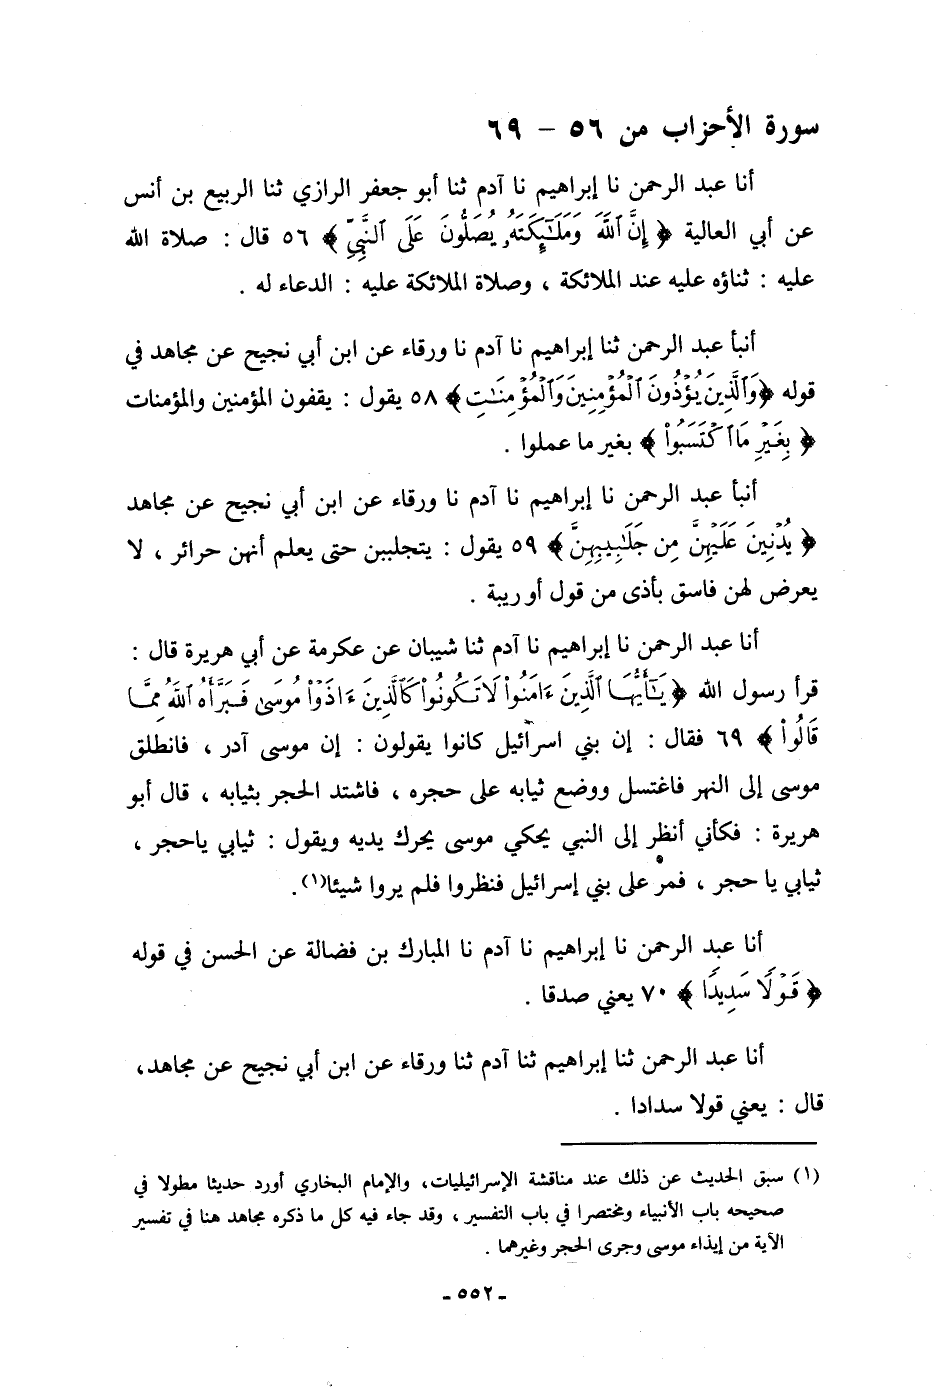 سورة الأحزاب من ٥٦ – ٦٩
أنا عبد الرحمن نا إبراهيم نا آدم ثنا أبو جعفر الرازي ثنا الربيع بن أنس
عن أبي العالية ﴿ إِنَّ ٱللَّهَ وَمَلَـٰٓئِكَتَهُۥ يُصَلُّونَ عَلَى ٱلنَّبِيِّ ﴾ ٥٦ قال : صلاة الله
عليه : ثناؤه عليه عند الملائكة ، وصلاة الملائكة عليه : الدعاء له .
أنبأ عبد الرحمن ثنا إبراهيم نا آدم نا ورقاء عن ابن أبي نجيح عن مجاهد في
قوله ﴿وَٱلَّذِينَ يُؤْذُونَ ٱلْمُؤْمِنِينَ وَٱلْمُؤْمِنَـٰتِ﴾ ٥٨ يقول : يقفون المؤمنين والمؤمنات
﴿ بِغَيْرِ مَا ٱكْتَسَبُوا۟ ﴾ بغير ما عملوا .
أنبأ عبد الرحمن نا إبراهيم نا آدم نا ورقاء عن ابن أبي نجيح عن مجاهد
﴿ يُدْنِينَ عَلَيْهِنَّ مِن جَلَـٰبِيبِهِنَّ ﴾ ٥٩ يقول : يتجلببن حتى يعلم أنهن حرائر ، لا
يعرض لهن فاسق بأذى من قول أو ريبة .
أنا عبد الرحمن نا إبراهيم نا آدم ثنا شيبان عن عكرمة عن أبي هريرة قال :
قرأ رسول الله ﴿ يَـٰٓأَيُّهَا ٱلَّذِينَ ءَامَنُوا۟ لَا تَكُونُوا۟ كَٱلَّذِينَ ءَاذَوْا۟ مُوسَىٰ فَبَرَّأَهُ ٱللَّهُ مِمَّا
قَالُوا۟ ﴾ ٦٩ فقال : إن بني اسرآئيل كانوا يقولون : إن موسى آدر ، فانطلق
موسى إلى النهر فاغتسل ووضع ثيابه على حجره ، فاشتد الحجر بثيابه ، قال أبو
هريرة : فكأني أنظر إلى النبي يحكي موسى يحرك يديه ويقول : ثيابي ياحجر ،
ثيابي يا حجر ، فمر على بني إسرائيل فنظروا فلم يروا شيئا(١).
أنا عبد الرحمن نا إبراهيم نا آدم نا المبارك بن فضالة عن الحسن في قوله
﴿ قَوْلًا سَدِيدًا ﴾ ٧٠ يعني صدقا .
أنا عبد الرحمن ثنا إبراهيم ثنا آدم ثنا ورقاء عن ابن أبي نجيح عن مجاهد،
قال : يعني قولا سدادا .
(١) سبق الحديث عن ذلك عند مناقشة الإسرائيليات، والإمام البخاري أورد حديثا مطولا في
صحيحه باب الأنبياء ومختصرا في باب التفسير ، وقد جاء فيه كل ما ذكره مجاهد هنا في تفسير
الآية من إيذاء موسى وجرى الحجر وغيرهما .
- ٥٥٢ -